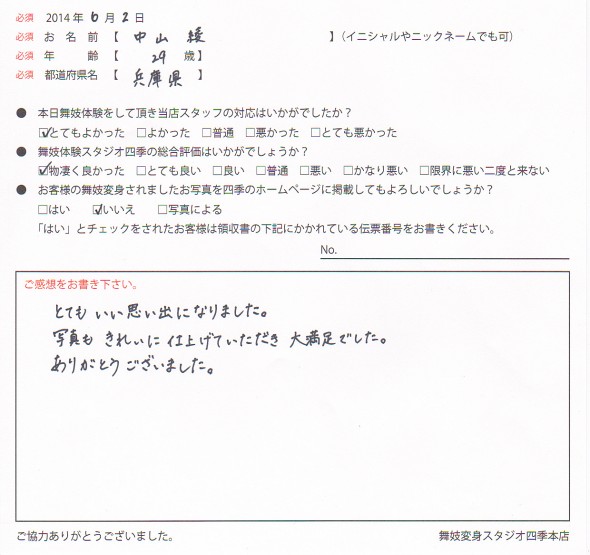 必須 2014年 6月 2日
必須 お名前【 中山 綾 】（イニシャルやニックネームでも可）
必須 年齢【 29 歳】
必須 都道府県名【 兵庫県 】
● 本日舞妓体験をして頂き当店スタッフの対応はいかがでしたか？
☑とてもよかった □よかった □普通 □悪かった □とても悪かった
● 舞妓体験スタジオ四季の総合評価はいかがでしょうか？
☑物凄く良かった □とても良い □良い □普通 □悪い □かなり悪い □限界に悪い二度と来ない
● お客様の舞妓変身されましたお写真を四季のホームページに掲載してもよろしいでしょうか？
□はい ☑いいえ □写真による
「はい」とチェックをされたお客様は領収書の下記にかかれている伝票番号をお書きください。
No.
ご感想をお書き下さい。
とても いい思い出になりました。
写真も きれいに 仕上げていただき 大満足でした。
ありがとうございました。
ご協力ありがとうございました。
舞妓変身スタジオ四季本店